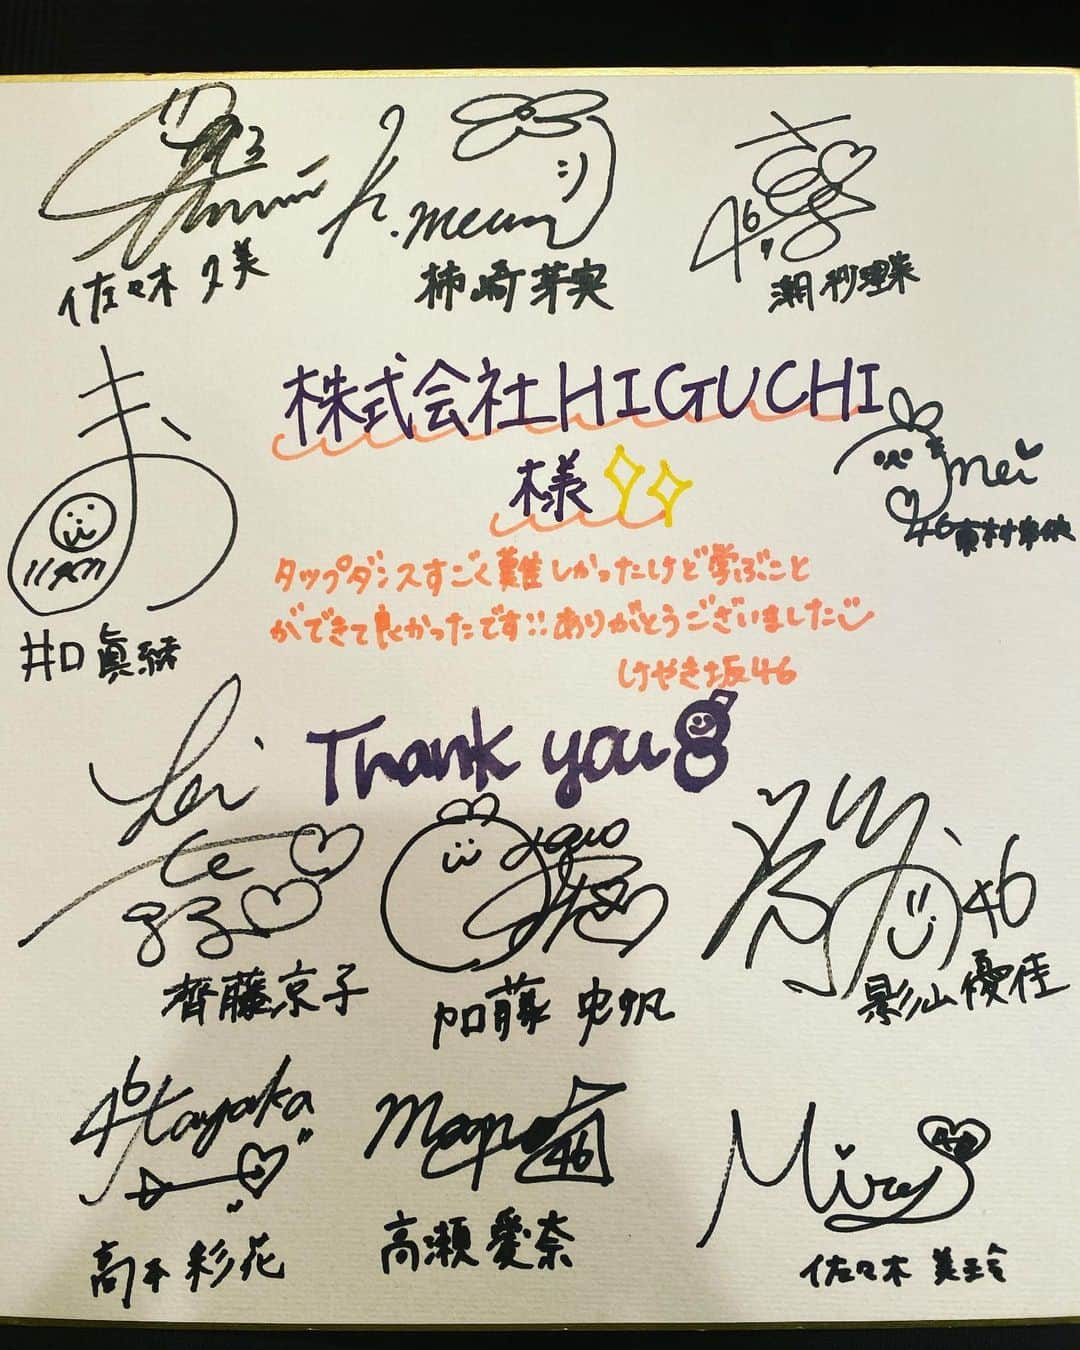 佐々木久美
柿崎芽実
潮紗理菜
株式会社HIGUCHI
様
mei
46
東村芽依
タップダンスすごく難しかったけど学ぶこと
ができて良かったです!!ありがとうございました
けやき坂46
井口眞緒
Thank you
46
齊藤京子
加藤史帆
影山優佳
46 Ayaka
46
高本彩花
高瀬愛奈
Mirei
佐々木美玲